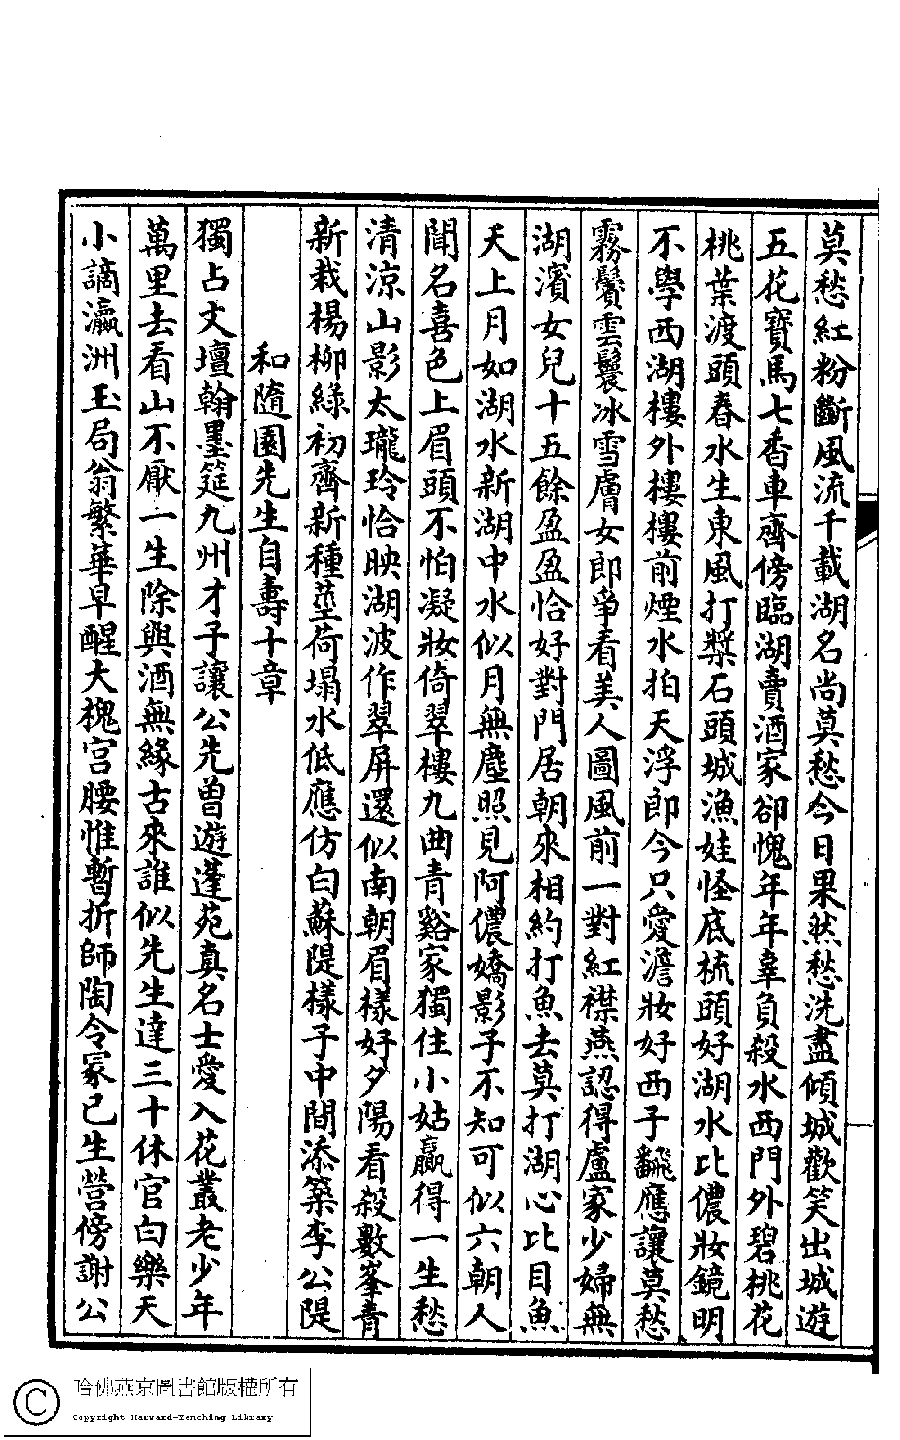 莫愁紅粉斷風流千載湖名尚莫愁今日果然愁洗盡傾城歡笑出城遊
五花寶馬七香車齊傍臨湖賣酒家卻愧年年辜負殺水西門外碧桃花
桃葉渡頭春水生東風打槳石頭城漁娃怪底梳頭好湖水比儂妝鏡明
不學西湖樓外樓樓前煙水拍天浮即今只愛澹妝好西子翻應讓莫愁
霧鬢雲鬟冰雪膚女郎爭看美人圖風前一對紅襟燕認得盧家少婦無
湖濱女兒十五餘盈盈恰好對門居朝來相約打魚去莫打湖心比目魚
天上月如湖水新湖中水似月無塵照見阿儂嬌影子不知可似六朝人
聞名喜色上眉頭不怕凝妝倚翠樓九曲青谿家獨住小姑贏得一生愁
清涼山影太瓏玲恰映湖波作翠屏還似南朝眉樣好夕陽看殺數峯青
新栽楊柳綠初齊新種莖荷塌水低應仿白蘇隄樣子中間添築李公隄
和隨園先生自壽十章
獨占文壇翰墨筵九州才子讓公先曾遊蓬苑真名士愛入花叢老少年
萬里去看山不厭一生除與酒無緣古來誰似先生達三十休官白樂天
小謫瀛洲玉局翁繁華早醒大槐宮腰惟暫折師陶令冢已生營傍謝公
哈佛燕京圖書館版權所有
Copyright Harvard-Yenching Library